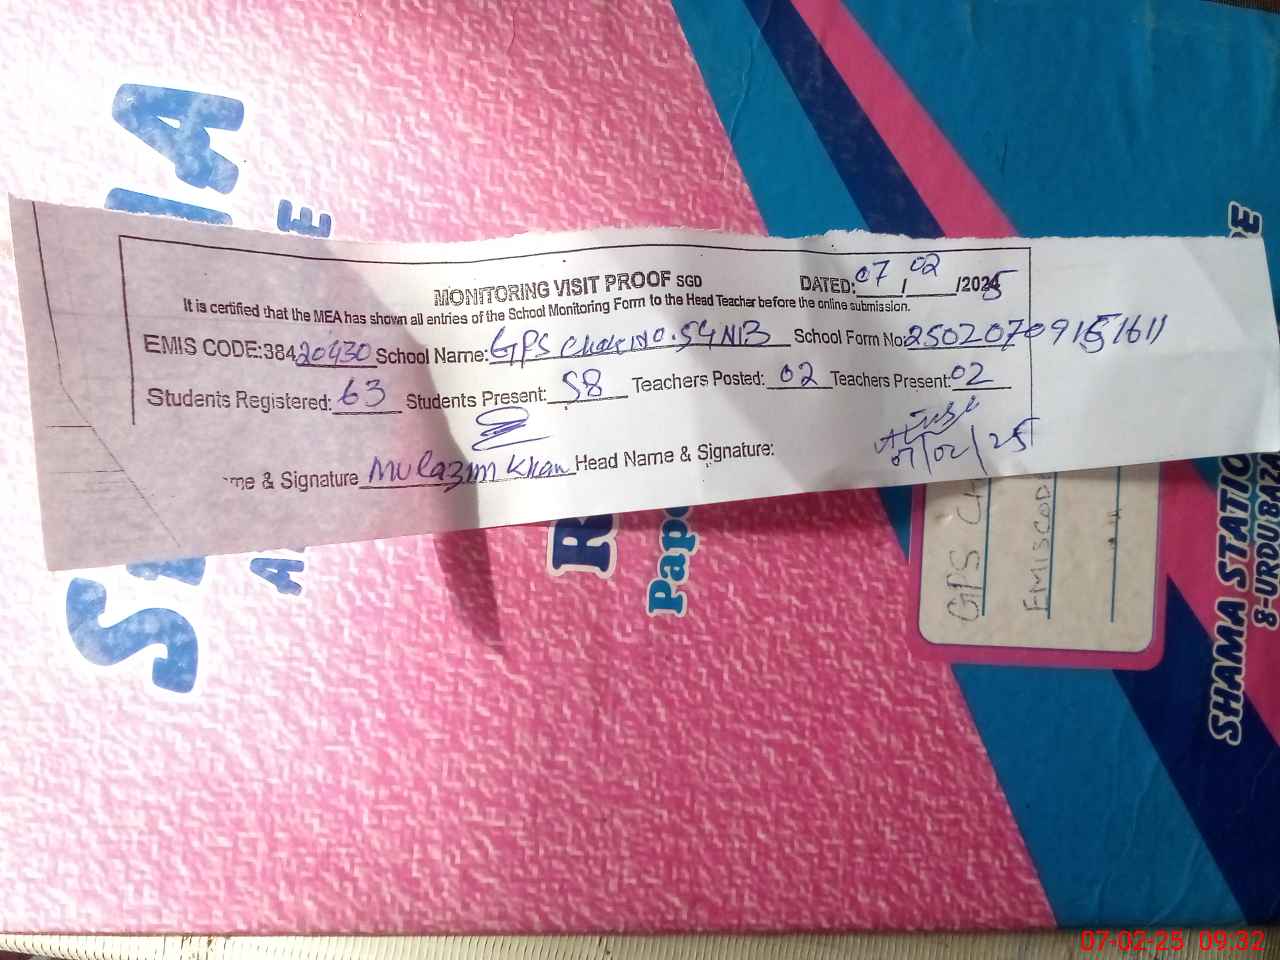 MONITORING VISIT PROOF SGD
DATED: 07/02/2025
It is certified that the MEA has shown all entries of the School Monitoring Form to the Head Teacher before the online submission.
EMIS CODE:38420430 School Name: GPS Chak No. 54 NB School Form No:
Students Registered: 63 Students Present: 58 Teachers Posted: 02 Teachers Present: 02
me & Signature Mulazim Khan Head Name & Signature:
07/02/25
GPS Ch
EMIS CODE
SHAMA STATIO
8-URDU BAZA
07-02-25 09:32